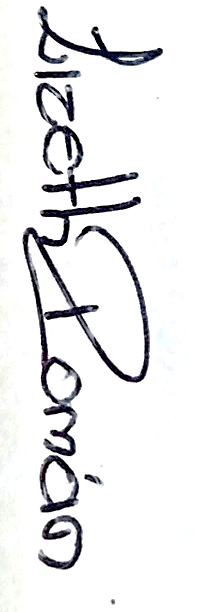 Lizeth Román